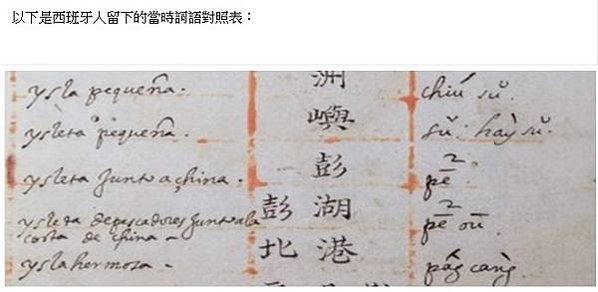 以下是西班牙人留下的當時詞語對照表：
ysla pequeña. 洲 chiu sŭ.
ysleta pequeña. 嶼 sŭ. hày sŭ.
ysleta junto a china. 彭 pē
ysleta de pescadores junto a la 彭湖 pē oū.
costa de china
ysla hermosa 北港 pag cang.